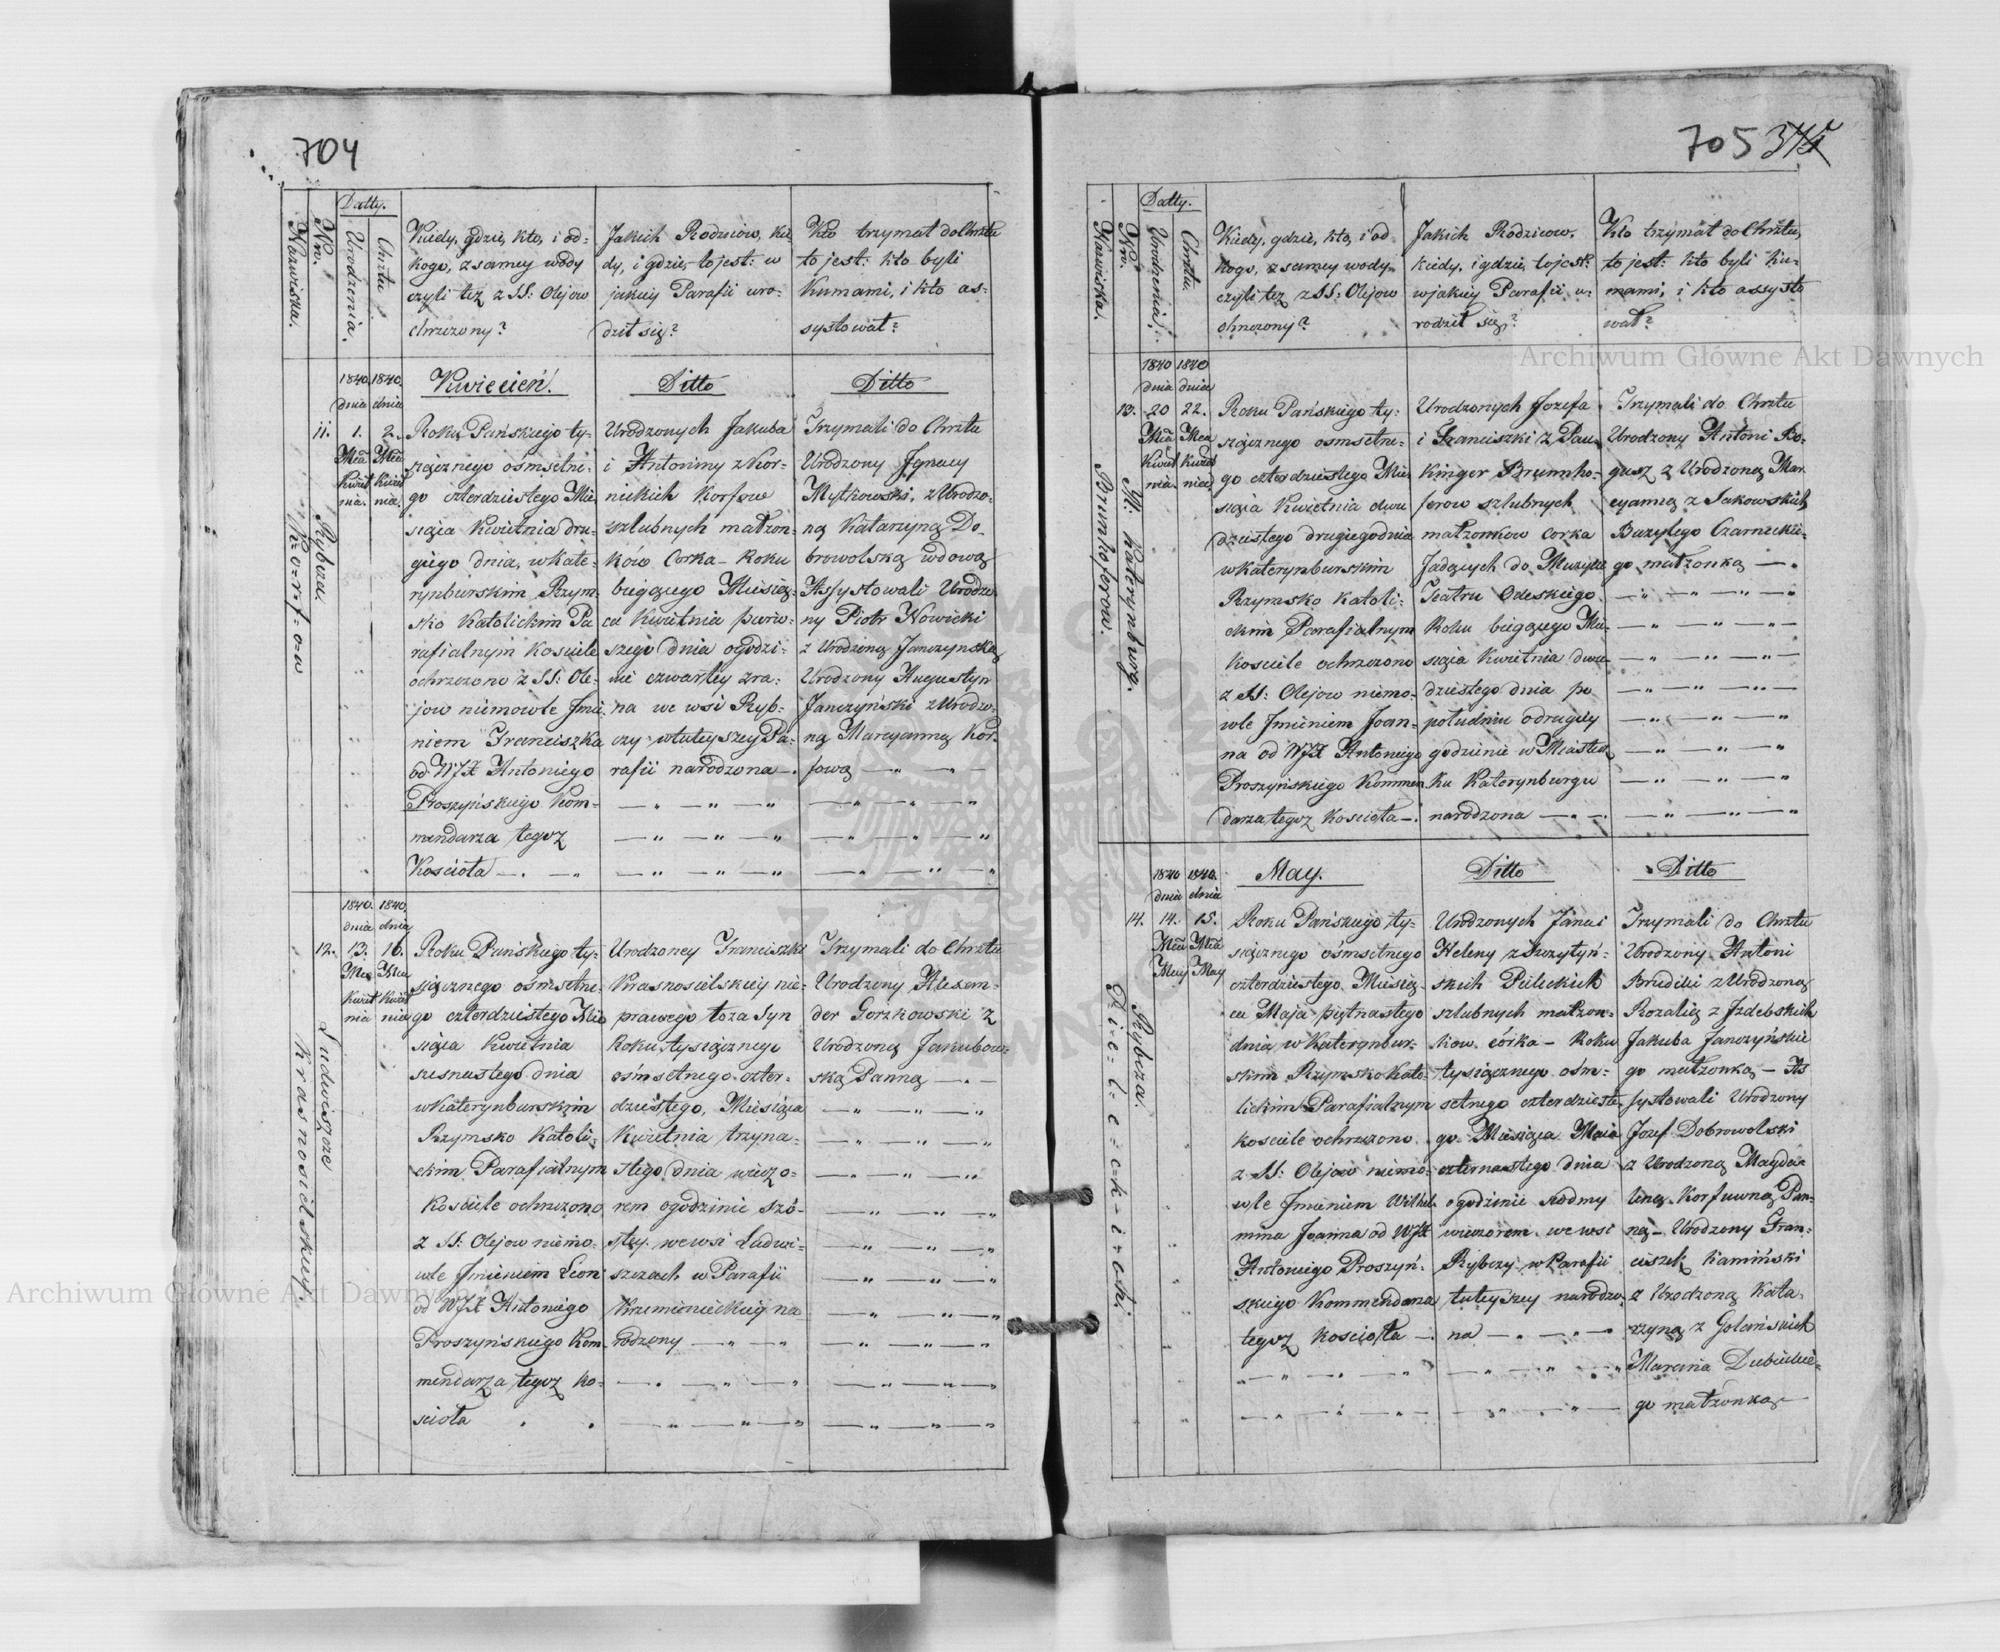 704
Nazwiska.
Nrr.
Datty.
Urodzenia.
Chrztu
Kiedy, gdzie, kto, i od=
kogo, z samey wody
czyli też z SS: Olejow
chrzczony?
Jakich Rodziców, kie
dy, i gdzie, to jest: w
jakiey Parafii uro=
dził się?
Kto trzymał do Chrztu
to jest: kto byli
Kumami, i kto as=
systował?
Rybcza.
K=o=r=f=o=w
11.
1840.
dnia
1.
Mca
Kwiet
nia.
1840.
dnia
2.
Mca
Kwiet
nia.
Kwiecień.
Roku Pańskiego ty=
siącznego ośmsetne=
go czterdziestego Mie
siąca Kwietnia dru=
giego dnia, w Kate=
rynburskim Rzym=
sko Katolickim Pa
rafialnym Kosciele
ochrzczono z SS: Ole=
jow niemowle Jmie
niem Franciszka
od WJX Antoniego
Proszyńskiego Kom=
mendarza tegoż
Koscioła —. —
Ditto
Urodzonych Jakuba
i Antoniny z Kor=
nickich Korfow
szlubnych małżon=
ków Corka — Roku
bieżącego Miesią=
ca Kwietnia pierw=
szego dnia o godzi=
nie czwartey zra=
na we wsi Ryb=
czy w tuteyszey Pa=
rafii narodzona —.
Ditto
Trzymali do Chrztu
Urodzony Jgnacy
Mytkowski, z Urodzo=
ną Katarzyną Do=
browolską wdową
Assystowali Urodzo
ny Piotr Nowicki
z Urodzoną Janczynską
Urodzony Augustyn
Janczyński z Urodzo=
ną Maryanną Kor=
fową — „ — „ —
Ludwiszcze
Krasnosielskiey.
12.
1840.
dnia
13.
Mca
Kwiet
nia
1840.
dnia
16.
Mca
Kwiet
nia
Roku Pańskiego ty=
siącznego ośmsetne=
go czterdziestego Mie
siąca Kwietnia
szesnastego dnia
w Katerynburskim
Rzymsko Katoli=
ckim Parafialnym
Kosciele ochrzczono
z SS: Olejow niemo=
wle Jmieniem Leon
od WJX Antoniego
Proszyńskiego Kom=
mendarza tegoż Ko=
scioła
Urodzoney Franciszki
Krasnosielskiey nie=
prawego łoża Syn
Roku tysiącznego
ośmsetnego czter=
dziestego, Miesiąca
Kwietnia trzyna=
stego dnia wieczo=
rem o godzinie szó=
stey we wsi Ludwi=
szczach w Parafii
Krzemienieckiey na
rodzony — „ — „
Trzymali do Chrztu
Urodzony Alexan=
der Gorzkowski z
Urodzoną Jakubow=
ską Panną —. —
705
Nazwiska.
Nrr.
Datty.
Urodzenia.
Chrztu
Kiedy, gdzie, kto, i od
kogo, z samey wody
czyli też z SS: Olejow
chrzczony?
Jakich Rodzicow.
kiedy, i gdzie, to jest:
w jakiey Parafii u=
rodził się?
Kto trzymał do Chrztu,
to jest: kto byli Ku=
mami, i kto assysto
wał?
M: Katerynburg.
Brumhoferow.
13.
1840
dnia
20
Mca
Kwiet
nia.
1840
dnia
22.
Mca
Kwiet
nia
Roku Pańskiego ty=
siącznego ośmsetne=
go czterdziestego Mie=
siąca Kwietnia dwu
dziestego drugiego dnia
w Katerynburskim
Rzymsko Katoli=
ckim Parafialnym
Kosciele ochrzczono
z SS: Olejow niemo=
wle Jmieniem Joan=
na od WJX Antoniego
Proszyńskiego Kommen
darza tegoż Kosciola —.
Urodzonych Jozefa
i Franciszki z Pau
kinger Brumho=
ferow szlubnych
małżonkow corka
Jadących do Muzyki
Teatru Odeskiego
Roku bieżącego Mie=
siąca Kwietnia dwu
dziestego dnia po
południu o drugiey
godzinie w Miastecz
ku Katerynburgu
narodzona —. —.
Trzymali do Chrztu
Urodzony Antoni Bo=
gusz z Urodzoną Mar
cyanną z Jakowskich
Bazylego Czarneckie=
go małżonką —.
Rybcza.
P=i=l=e=c=k=i=ch.
14.
1840
dnia
14.
Mca
May
1840.
dnia
15.
Mca
May
May.
Roku Pańskiego ty=
siącznego ośmsetnego
czterdziestego Miesią=
ca Maja piętnastego
dnia w Katerynbur=
skim Rzymsko Kato=
lickim Parafialnym
Kosciele ochrzczono
z SS: Olejow niemo=
wle Jmieniem Wilhel=
mina Joanna od WJX
Antoniego Proszyń=
skiego Kommendarza
tegoż Kosciola —.
Ditto
Urodzonych Jana i
Heleny z Szczytyń=
skich Pileckich
szlubnych małżon=
kow córka — Roku
tysiącznego ośm=
setnego czterdzieste
go Miesiąca Maia
czternastego dnia
o godzinie siodmy
wieczorem we wsi
Rybczy w Parafii
tuteyszey narodzo=
na —. —. —
Ditto
Trzymali do Chrztu
Urodzony Antoni
Brudicki z Urodzoną
Rozalią z Jzdebskich
Jakuba Janczyńskie
go małżonką — As
systowali Urodzony
Jozef Dobrowolski
z Urodzoną Magda=
leną Korfuwną Pan=
ną — Urodzony Fran=
ciszek Kamiński
z Urodzoną Kata=
rzyną z Golenskich
Marcina Dubickie=
go małżonką —
Archiwum Główne Akt Dawnych
Archiwum Główne Akt Dawnych